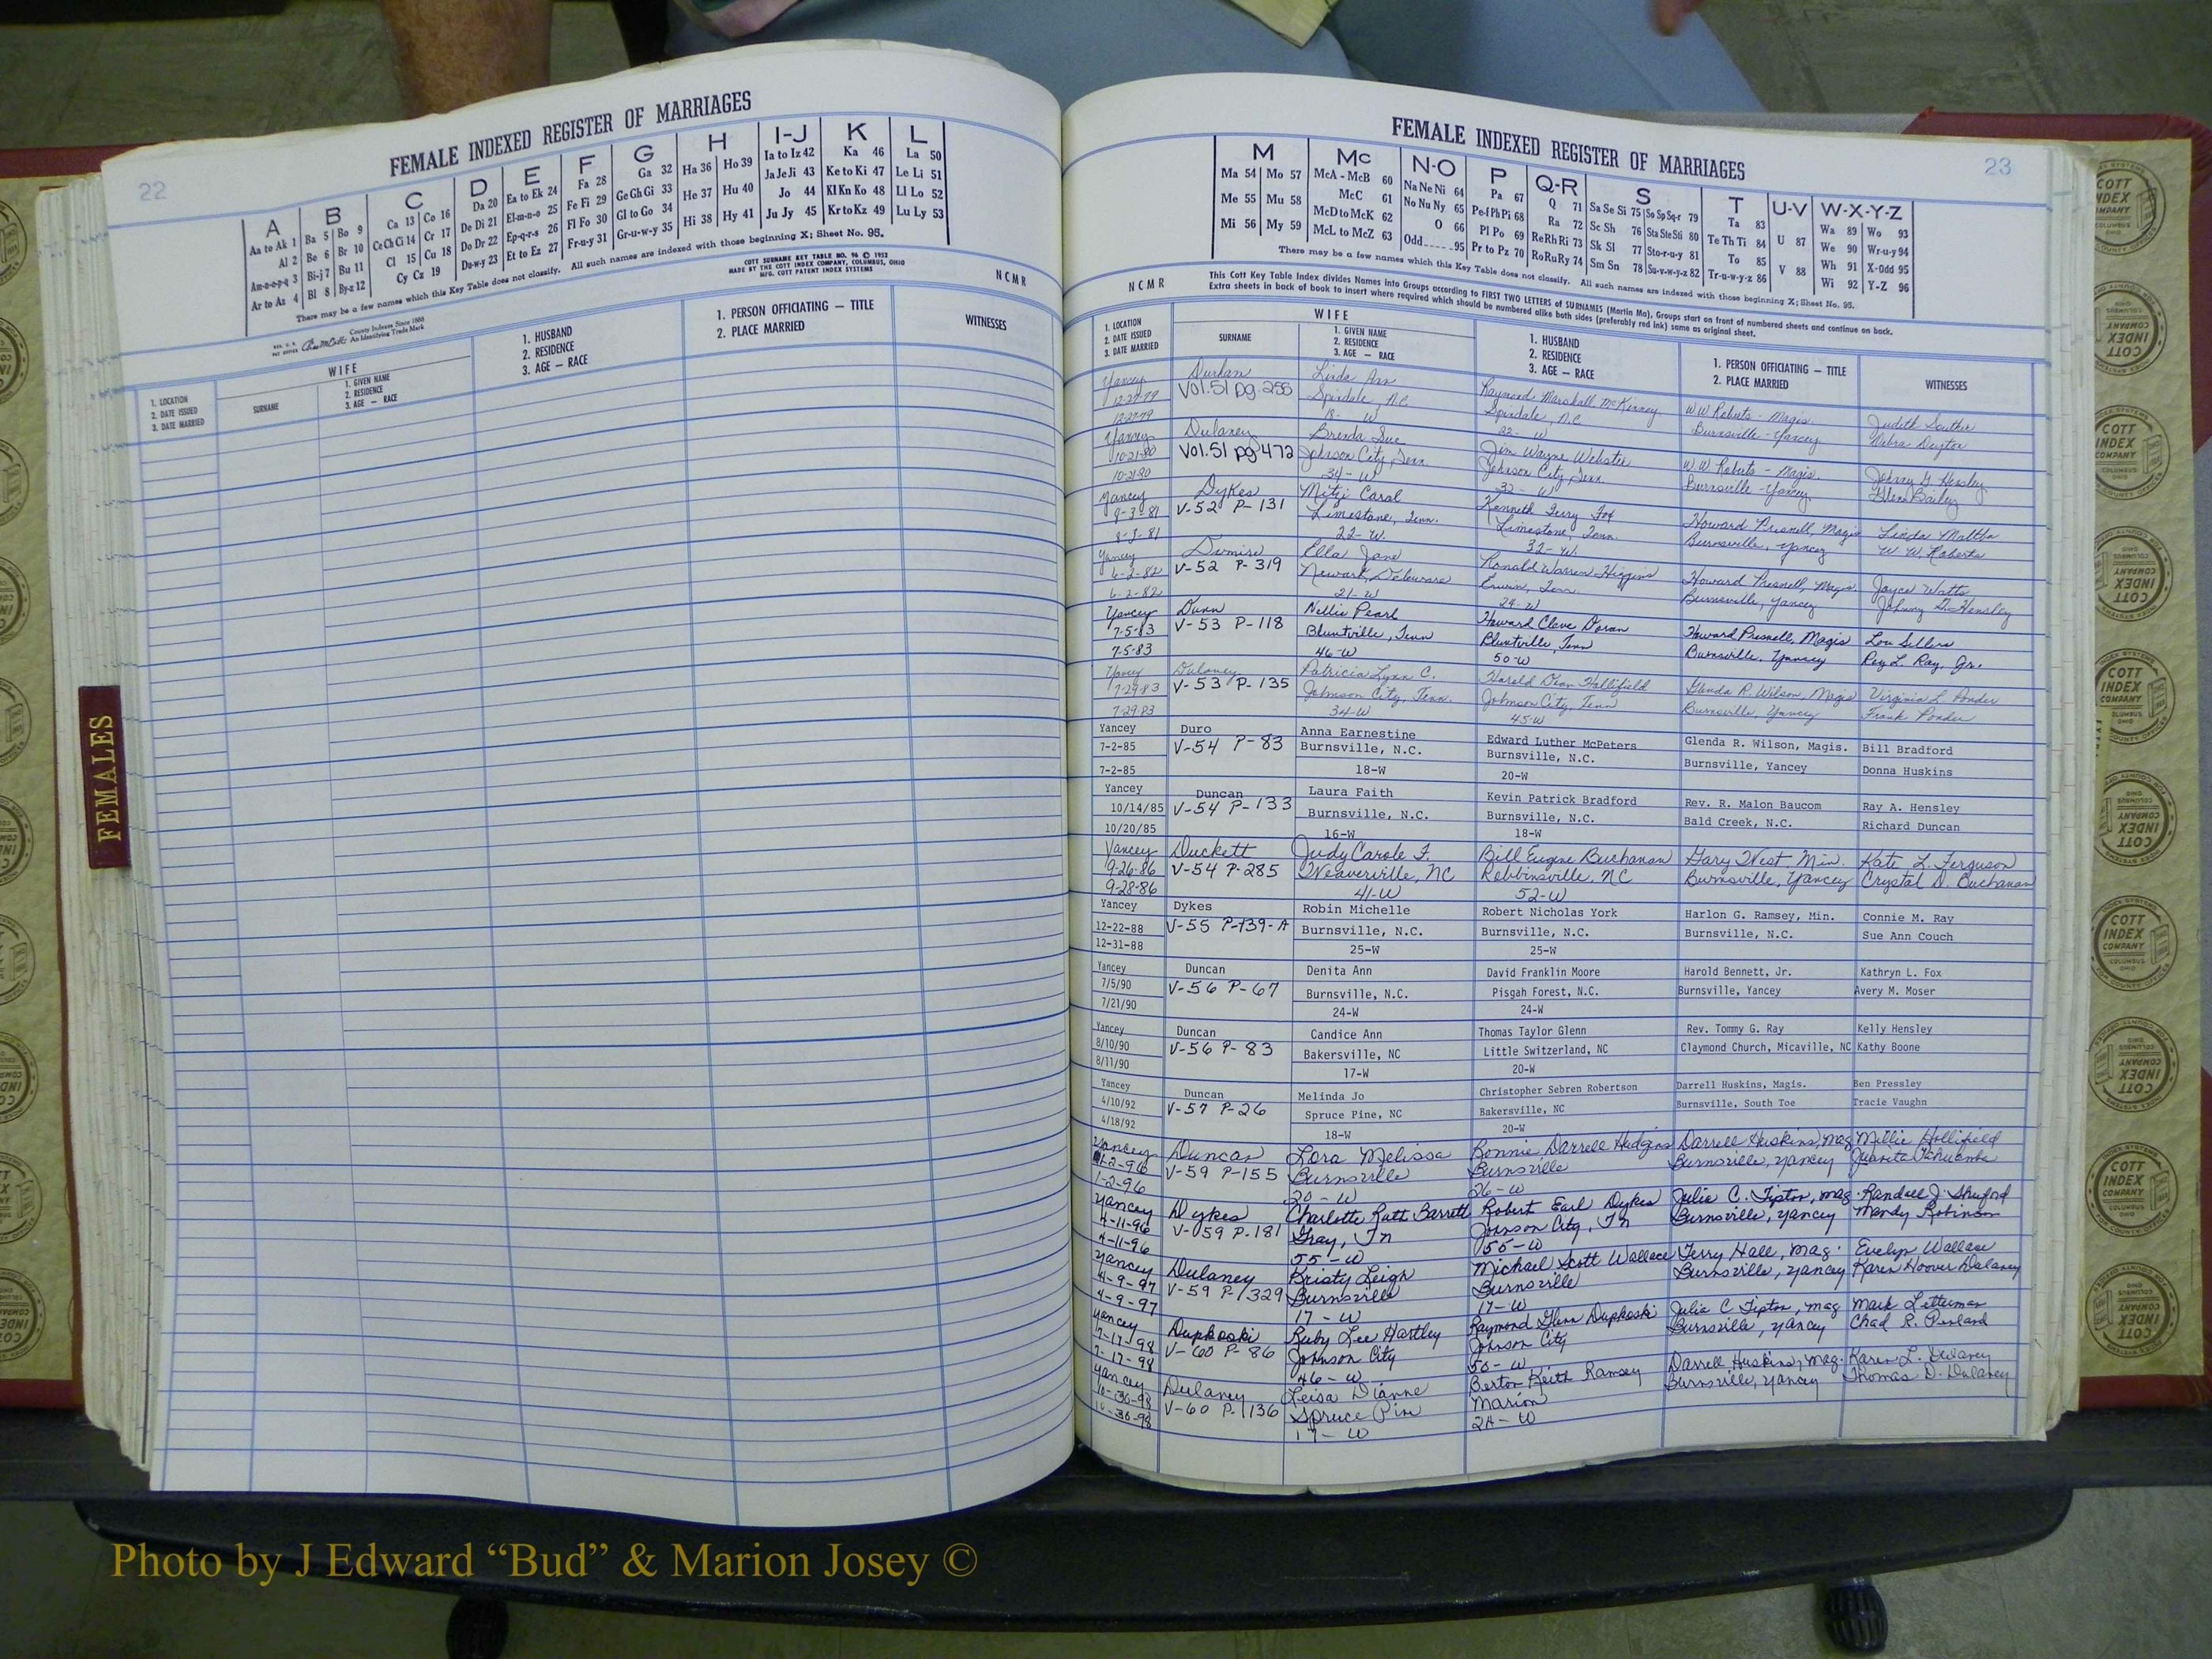 22
FEMALE INDEXED REGISTER OF MARRIAGES
A B C D E F G H I-J K L
Aa to Ak 1 Ba 5 Bo 9 Ca 13 Co 16 Da 20 Ea to Ek 24 Fa 28 Ga 32 Ha 36 Ho 39 Ia to Iz 42 Ka 46 La 50
Al 2 Be 6 Br 10 Ce Ch Ci 14 Cr 17 De Di 21 El-m-n-o 25 Fe Fi 29 Ge Gh Gi 33 He 37 Hu 40 Ja Je Ji 43 Ke to Ki 47 Le Li 51
Am-n-o-p-q 3 Bi-j 7 Bu 11 Cl 15 Cu 18 Do Dr 22 Ep-q-r-s 26 Fl Fo 30 Gl to Go 34 Hi 38 Hy 41 Jo 44 Kl Kn Ko 48 Ll Lo 52
Ar to Az 4 Bl 8 By-z 12 Cy Cz 19 Du-w-y 23 Et to Ez 27 Fr-u-y 31 Gr-u-w-y 35 Ju Jy 45 Kr to Kz 49 Lu Ly 53
There may be a few names which this Key Table does not classify. All such names are indexed with those beginning X; Sheet No. 95.
COTT SURNAME KEY TABLE NO. 96 © 1952
MADE BY THE COTT INDEX COMPANY, COLUMBUS, OHIO
MFG. COTT PATENT INDEX SYSTEMS
County Indexes Since 1888
An Identifying Trade Mark
NCMR
1. LOCATION
2. DATE ISSUED
3. DATE MARRIED
WIFE
SURNAME
1. GIVEN NAME
2. RESIDENCE
3. AGE — RACE
1. HUSBAND
2. RESIDENCE
3. AGE — RACE
1. PERSON OFFICIATING — TITLE
2. PLACE MARRIED
WITNESSES
FEMALES
23
FEMALE INDEXED REGISTER OF MARRIAGES
M Mc N-O P Q-R S T U-V W-X-Y-Z
Ma 54 Mo 57 McA - McB 60 Na Ne Ni 64 Pa 67 Q 71 Sa Se Si 75 So Sp Sq-r 79 Ta 83 U 87 Wa 89 Wo 93
Me 55 Mu 58 McC 61 No Nu Ny 65 Pe-f Ph Pi 68 Ra 72 Sc Sh 76 Sta Ste Sti 80 Te Th Ti 84 V 88 We 90 Wr-u-y 94
Mi 56 My 59 McD to McK 62 O 66 Pl Po 69 Re Rh Ri 73 Sk Sl 77 Sto-r-u-y 81 To 85 Wh 91 X-Odd 95
McL to McZ 63 Odd 95 Pr to Pz 70 Ro Ru Ry 74 Sm Sn 78 Su-v-w-y-z 82 Tr-u-w-y-z 86 Wi 92 Y-Z 96
There may be a few names which this Key Table does not classify. All such names are indexed with those beginning X; Sheet No. 95.
NCMR
This Cott Key Table Index divides Names into Groups according to FIRST TWO LETTERS of SURNAMES (Martin Ma), Groups start on front of numbered sheets and continue on back.
Extra sheets in back of book to insert where required which should be numbered alike both sides (preferably red ink) same as original sheet.
1. LOCATION
2. DATE ISSUED
3. DATE MARRIED
WIFE
SURNAME
1. GIVEN NAME
2. RESIDENCE
3. AGE — RACE
1. HUSBAND
2. RESIDENCE
3. AGE — RACE
1. PERSON OFFICIATING — TITLE
2. PLACE MARRIED
WITNESSES
Yancey Durham Linda Ann Raymond Marshall McKinney W W Roberts - Magis
12-27-79 Vol. 51 pg. 255 Spindale, N.C. Spindale, N.C. Burnsville - Yancey Judith Souther
12-27-79 18- W 22- W
Yancey Dulaney Brenda Sue Jim Wayne Webster W. W. Roberts - Magis.
10-21-80 Vol. 51 pg 472 Johnson City, Tenn. Johnson City, Tenn. Burnsville - Yancey Johnny G Hensley
10-21-80 34- W 32- W
Yancey Dykes Mitzi Carol Kenneth Terry Fox Howard Presnell, Magis
8-3-81 V-52 P-131 Limestone, Tenn. Limestone, Tenn. Burnsville, Yancey W. W. Roberts
8-3-81 22- W. 32- W.
Yancey Ella Jane Ronald Warren Higgins Howard Presnell, Magis Joyce Watts
6-2-82 V-52 P-319 Newark, Delaware Erwin, Tenn. Burnsville, Yancey Johnny G. Hensley
6-2-82 21-W 24-W
Yancey Dunn Nellie Pearl Howard Cleve Doran Howard Presnell, Magis Lou Sellers
7-5-83 V-53 P-118 Bluntville, Tenn Bluntville, Tenn Burnsville, Yancey Roy L. Ray, Jr.
7-5-83 46-W 50-W
Yancey Dulaney Patricia Lynn C. Harold Dean Hollifield Glenda R. Wilson, Magis Virginia L. Ponder
7-29-83 V-53 P-135 Johnson City, Tenn. Johnson City, Tenn Burnsville, Yancey Frank Ponder
7-29-83 34-W 45-W
Yancey Duro Anna Earnestine Edward Luther McPeters Glenda R. Wilson, Magis. Bill Bradford
7-2-85 V-54 P-83 Burnsville, N.C. Burnsville, N.C. Burnsville, Yancey Donna Huskins
7-2-85 18-W 20-W
Yancey Duncan Laura Faith Kevin Patrick Bradford Rev. R. Malon Baucom Ray A. Hensley
10/14/85 V-54 P-133 Burnsville, N.C. Burnsville, N.C. Bald Creek, N.C. Richard Duncan
10/20/85 16-W 18-W
Yancey Duckett Judy Carole F. Bill Eugene Buchanan Gary West, Min. Kate L. Ferguson
9-26-86 V-54 P-285 Weaverville, NC Robbinsville, NC Burnsville, Yancey Crystal D. Buchanan
9-28-86 41-W 52-W
Yancey Dykes Robin Michelle Robert Nicholas York Harlon G. Ramsey, Min. Connie M. Ray
12-22-88 V-55 P-139-A Burnsville, N.C. Burnsville, N.C. Burnsville, N.C. Sue Ann Couch
12-31-88 25-W 25-W
Yancey Duncan Denita Ann David Franklin Moore Harold Bennett, Jr. Kathryn L. Fox
7/5/90 V-56 P-67 Burnsville, N.C. Pisgah Forest, N.C. Burnsville, Yancey Avery M. Moser
7/21/90 24-W 24-W
Yancey Duncan Candice Ann Thomas Taylor Glenn Rev. Tommy G. Ray Kelly Hensley
8/10/90 V-56 P-83 Bakersville, NC Little Switzerland, NC Claymond Church, Micaville, NC Kathy Boone
8/11/90 17-W 20-W
Yancey Duncan Melinda Jo Christopher Sebren Robertson Darrell Huskins, Magis. Ben Pressley
4/10/92 V-57 P-26 Spruce Pine, NC Bakersville, NC Burnsville, South Toe Tracie Vaughn
4/18/92 18-W 20-W
Yancey Duncan Lora Melissa Ronnie Darrell Hudgins Darrell Huskins, Mag Millie Hollifield
1-2-96 V-59 P-155 Burnsville Burnsville Burnsville, Yancey Juanita
1-2-96 20-W 26-W
Yancey Dykes Charlotte Ruth Barrett Robert Earl Dykes Julia C. Tipton, Mag. Randall J. Shuford
4-11-96 V-59 P.181 Gray, Tn Johnson City, Tn Burnsville, Yancey Mandy Robinson
4-11-96 55-W 55-W
Yancey Dulaney Kristy Leigh Michael Scott Wallace Terry Hall, Mag. Evelyn Wallace
4-9-97 V-59 P-329 Burnsville Burnsville Burnsville, Yancey Karen Hoover Dulaney
4-9-97 17-W 17-W
Yancey Dupkoski Ruby Lee Hartley Raymond Glenn Dupkoski Julia C Tipton, Mag Mark Letterman
7-17-98 V-60 P-86 Johnson City Johnson City Burnsville, Yancey Chad R.
7-17-98 46-W 50-W
Yancey Dulaney Leisa Dianne Berton Keith Ramsey Darrell Huskins, Mag. Karen L. Dulaney
10-30-98 V-60 P-136 Spruce Pine Marion Burnsville, Yancey Thomas D. Dulaney
10-30-98 17-W 24-W
COTT INDEX COMPANY COLUMBUS OHIO
Photo by J Edward “Bud” & Marion Josey ©